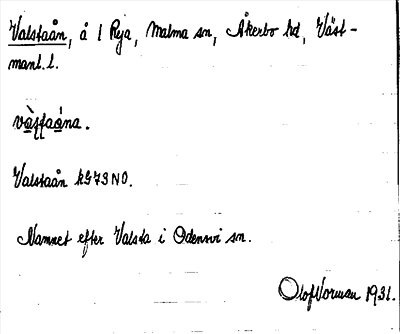 Valstaån, å i Reja, Malma sn, Åkerbo hd, Väst-
manl. l.
Valstaån kG73NO.
Namnet efter Valsta i Odensvi sn.
Olof Vorman 1931.